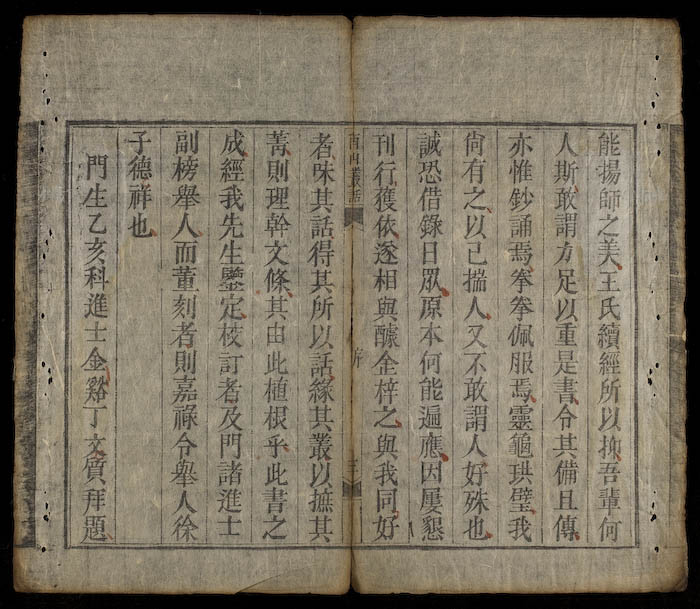 能揚師之美王氏續經所以抑吾輩何
人斯敢謂方足以重是書令其備且傳
亦惟鈔誦焉拳拳佩服焉靈龜珙璧我
尙有之以己揣人又不敢謂人好殊也
誠恐借錄日眾原本何能遍應因屢懇
刊行獲依遂相與醵金梓之與我同好
酉山叢話
序
三
者味其話得其所以話緣其叢以摭其
菁則理幹文條其由此植根乎此書之
成經我先生鑒定校訂者及門諸進士
副榜舉人而董刻者則嘉祿令舉人徐
子德祥也
門生乙亥科進士金谿丁文質拜題